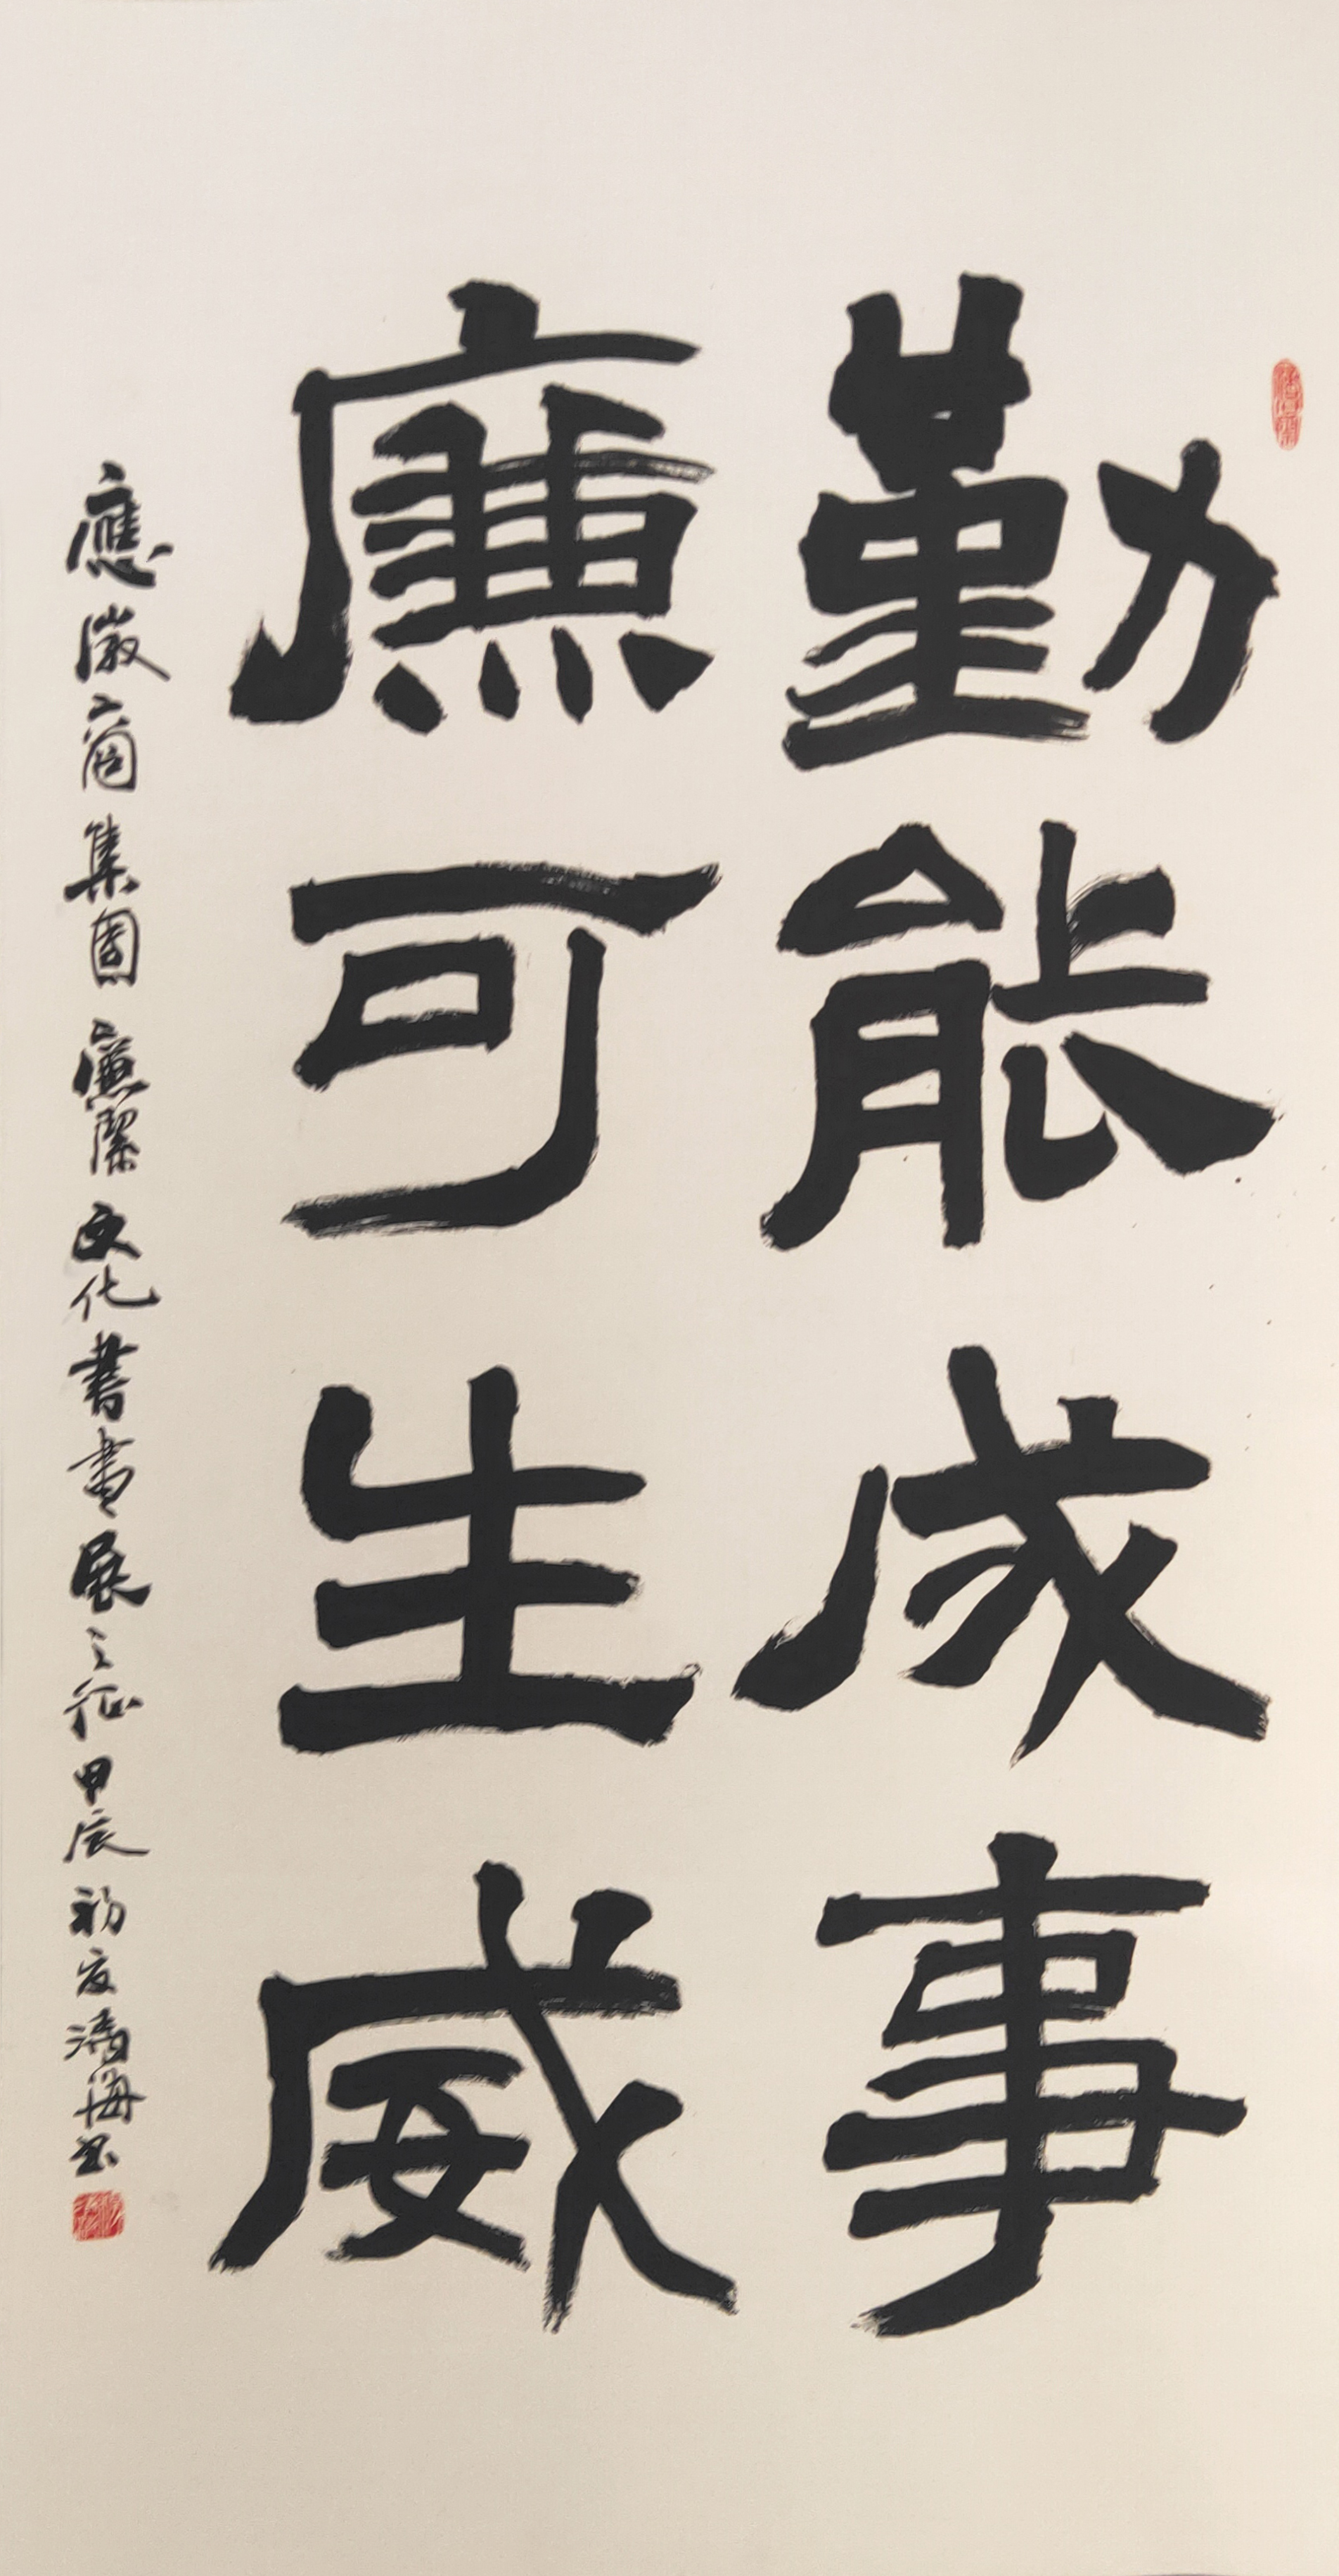 勤能成事
廉可生威
應徽商集團廉潔文化書畫展之征甲辰初夏濤海书